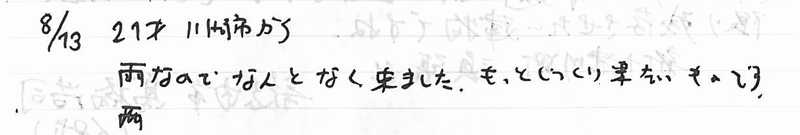 8/13 21才 川崎市から
雨なので なんとなく来ました. もっとじっくり来たいものです.
雨